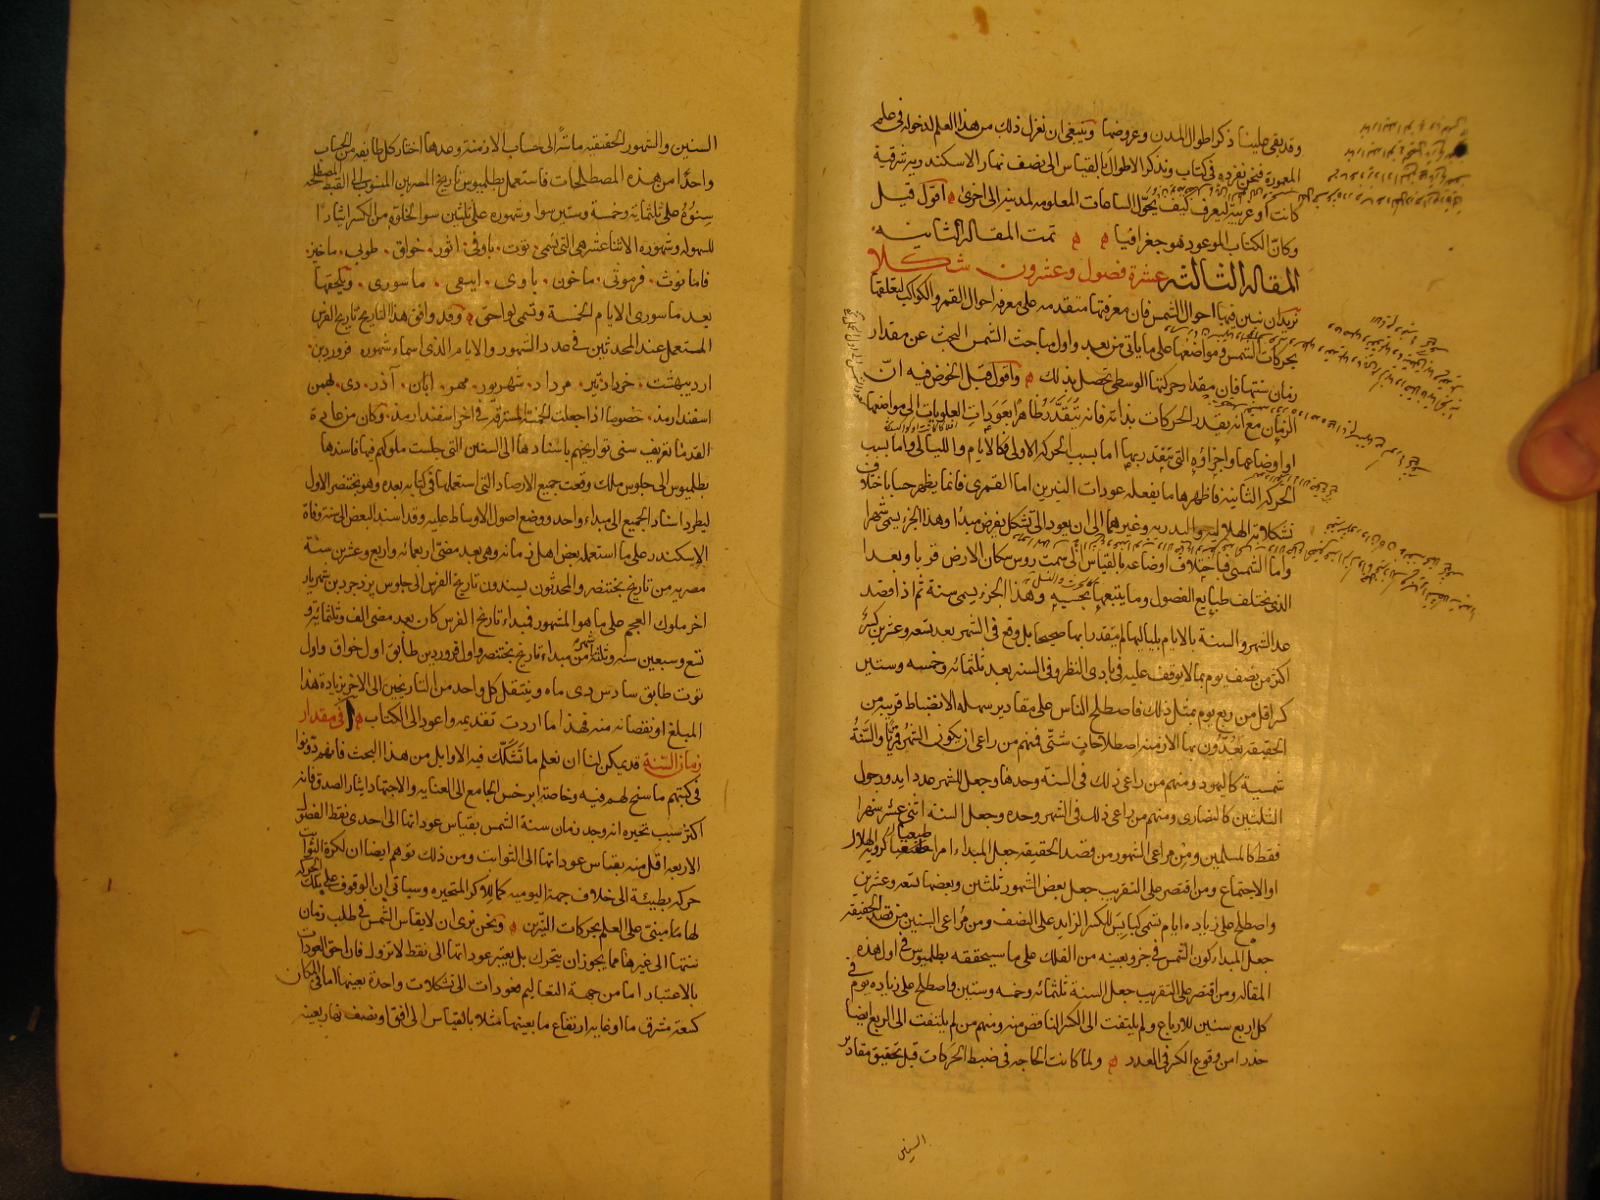 وقد بقى علينا ذكر اطوال المدن وعروضها وينبغى ان نعزل ذلك من هذا العلم لدخوله فى علم
المعمورة فنحن نفرده فى كتاب ونذكر الاطوال بالقياس الى نصف نهار الاسكندرية شرقية
كانت او غربية ليعرف كيف يحول الساعات المعلومه لمدينه الى اخرى اقول قيل
وكان الكتاب الموعود هو جغرافيا تمت المقاله الثانيه
المقاله الثالثه عشرة فصول وعشرون شكلا
نريد ان نبين فيها احوال الشمس فان معرفتها متقدمه على معرفه احوال القمر والكواكب لتعلقها
بحركات الشمس ومواضعها على ما ياتى من بعد واول مباحث الشمس البحث عن مقدار
زمان سنتها فان مقدار حركتها الوسطى تحصل بذلك واقول قبل الخوض فيه ان
الزمان مع انه يقدر الحركات بذاته فانه يتقدر ظاهرا بعودات العلويات الى مواضعها
او اوضاعها واجزاؤه التى يتقدر بها اما بسبب الحركه الاولى فكالايام والليالى واما بسبب
الحركه الثانيه فاظهرها ما يفعله عودات النيرين اما القمرى فانما يظهر حسابا ختلاف
تشكلاته الهلاليه والبدريه وغيرهما الى ان يعود الى تشكل يفرض مبدا وهذا الجزء يسمى شهرا
واما الشمسى فباختلاف اوضاعه بالقياس الى سمت روس سكان الارض قربا وبعدا
الذى يختلف طبايع الفصول وما يتبعها بحسبه وهذا الجزء يسمى سنة ثم اذا قصد
عد الشهر والسنة بالايام بلياليها لم يتقدرا بها صحيحا بل وقع فى الشهر بعد تسعه وعشرين كسر
اكثر من نصف يوم بما لا يوقف عليه فى بادى النظر وفى السنه بعد ثلثمائه وخمسه وستين
كسر اقل من ربع يوم بمثل ذلك فاصطلح الناس على مقادير سهله الانضباط قريبه من
الحقيقه يعدون بها الازمنه اصطلاحات شتى فمنهم من راعى ان يكون الشهر قمريا والسنة
شمسية كاليهود ومنهم من راعى ذلك فى السنة وحدها وجعل للشهر عددا يدور حول
الثلثين كالنصارى ومنهم من راعى ذلك فى الشهر وحده وجعل السنة اثنى عشر شهرا
فقط كالمسلمين ومن مراعى الشهور من قصد الحقيقه جعل المبداء امرا طبيعيا كرويه الهلال
او الاجتماع ومن اقتصر على التقريب جعل بعض الشهور ثلثين وبعضها تسعه وعشرين
واصطلح على زياده ايام تسمى كبايس للكسر الزايد على النصف ومن مراعى السنين من قصد الحقيقه
جعل المبدا كون الشمس فى جزو بعينه من الفلك على ما سيحققه بطلميوس فى اول هذه
المقاله ومن اقتصر على التقريب جعل السنة ثلثمائه وخمسه وستين واصطلح على زياده يوم فى
كل اربع سنين للارباع ولم يلتفت الى الكسر الناقص منه ومنهم من لم يلتفت الى الربع ايضا
حذرا من وقوع الكسر فى العدد ولما كانت الحاجه فى ضبط الحركات قبل تحقيق مقادير
السنين
السنين والشهور الحقيقيه ماسة الى حساب الازمنه وعدها اختار كل طايفه من الحساب
واحدا من هذه المصطلحات فاستعمل بطلميوس تاريخ المصريين المنسوب الى القبط المصطلحه
سنوه على ثلثمائه وخمسة وستين سوا وشهوره على ثلثين سوا لخلوه من الكسر ايثارا
للسهوله وشهوره الاثنا عشر هى التى تسمى توت باوفى اثور خواق طوبى ماخير
فامانوث فرموثى ماخون باوى ابيفى ماسورى ويلحقها
بعد ماسورى الايام الخمسة وتسمى لواحق وقد وافق هذا التاريخ تاريخ الفرس
المستعمل عند المحدثين فى عدد الشهور والايام الذى اسماء شهوره فروردين
ارديبهشت خرداد تير مرداد شهريور مهر ابان آذر دى بهمن
اسفندارمذ خصوصا اذا جعلت الخمسة المسترقة فى اخر اسفندارمذ وكان من عادة
القدما تعريف سنى تواريخهم باسنادها الى السنين التى جلست ملوكهم فيها فاسندها
بطلميوس الى جلوس ملك وقعت جميع الارصاد التى استعملها فى كتابه بعده وهو بختنصر الاول
ليطرد اسناد الجميع الى مبداء واحد ووضع اصول الاوساط عليه وقد اسند البعض الى سنة وفاة
الاسكندر على ما استعمله بعض اهل زمانه وهى بعد مضى اربعمائه واربع وعشرين سنة
مصريه من تاريخ بختنصر والمحدثون يسندون تاريخ الفرس الى جلوس يزدجرد بن شهريار
اخر ملوك العجم على ما هو المشهور فمبداء تاريخ الفرس كان بعد مضى الف وثلثمائة و
تسع وسبعين سنه وثلثه اشهر من مبداء تاريخ بختنصر واول فروردين طابق اول خواق واول
توت طابق سادس دى ماه وينتقل كل واحد من التاريخين الى الاخر بزيادة هذا
المبلغ او نقصانه منه فهذا ما اردت تقديمه واعود الى الكتاب ا فى مقدار
زمان السنة قد يمكن لنا ان نعلم ما تشكك فيه الاوايل من هذا البحث فانهم دونوا
فى كتبهم ما سنح لهم فيه وخاصة ابرخس الجامع الى العنايه والاجتهاد ايثار الصدق فانه
اكثر سبب تحيره انه وجد زمان سنة الشمس بقياس عوداتها الى احدى نقط الفصول
الاربعه اقل منه بقياس عوداتها الى الثوابت ومن ذلك توهم ايضا ان لكرة الثوابت
حركه بطيئة الى خلاف جهة اليوميه كما للاكر المتحيره وسياتى ان الوقوف على تلك الحركه
لها مما يبتنى على العلم بحركات النيرين ونحن نرى ان لا يقاس الشمس فى طلب زمان
سنتها الى غيرها مما يجوز ان يتحرك بل يعتبر عوداتها الى نقط لا تزول فان احق العودات
بالاعتبار اما من جهة التعاليم فعودات الى تشكلات واحدة بعينها اما فى المكان
كسعة مشرق ما او غايه ارتفاع ما بعينها مثلا بالقياس الى افق او نصف نهار بعينه